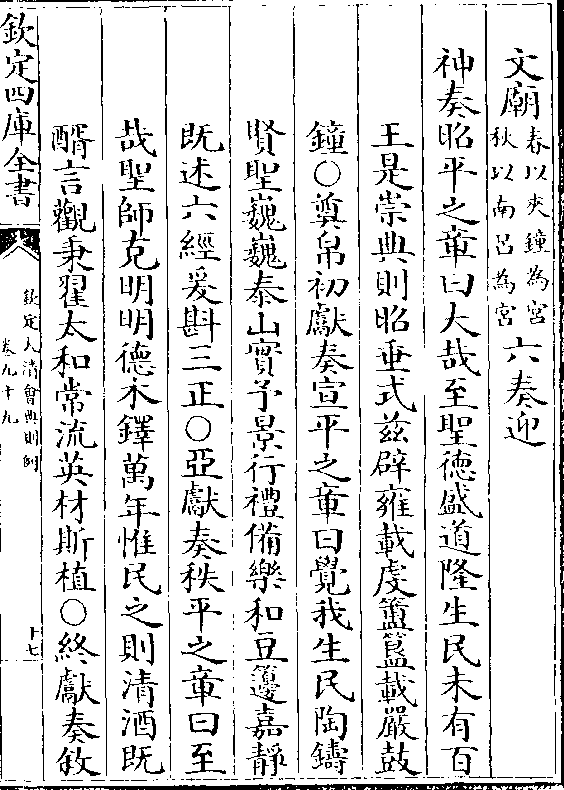 文廟春以夾鐘為宮秋以南呂為宮六奏迎
神奏昭平之章曰大哉至聖徳盛道隆生民未有百
王是崇典則昭垂式兹辟雍載䖍簠簋載嚴鼓
鐘○奠帛初獻奏宣平之章曰覺我生民陶鑄
賢聖巍巍泰山實予景行禮備樂和豆籩嘉靜
既述六經爰斟三正○亞獻奏秩平之章曰至
哉聖師克明明德木鐸萬年惟民之則清酒既
醑言觀秉翟太和常流英材斯植○終獻奏敘
欽定四庫全書
欽定大清會典則例
卷九十九
十七